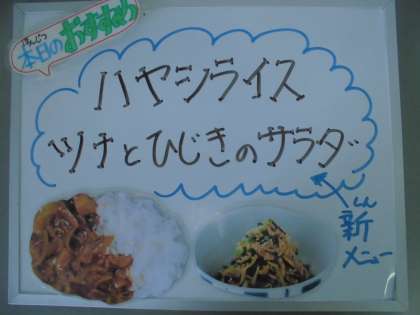 本日のおすすめ
ハヤシライス
ツナとひじきのサラダ
新
メニュー